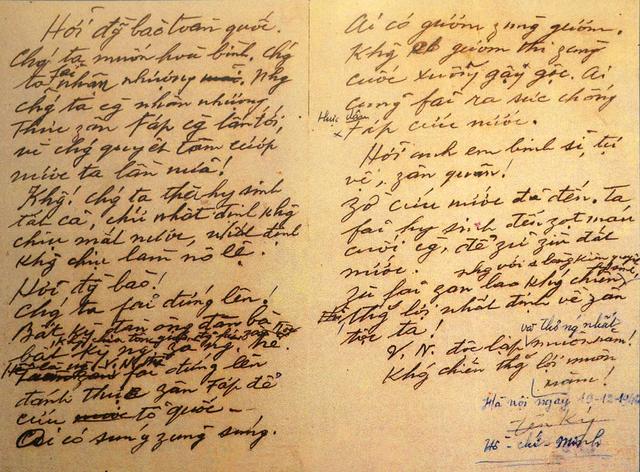 Hỡi đg̃ bào toàn quốc.
Chg' ta muốn hoà bình, chg'
ta fải nhân nhượng. Nhg
chg' ta cg nhân nhượng
Thực zân Fáp cg lấn tới,
vì chg' quyết tâm cướp
nước ta lần nữa!
Khg! chg' ta thà hy sinh
tất cả, chứ nhất định khg
chịu mất nước, nhất định
khg chịu làm nô lệ.
Hỡi đg̃ bào!
Chg' ta fải đứng lên!
Bất kỳ đàn ông đàn bà
bất kỳ ng già ng trẻ.
fải đứng lên
đánh thực zân Fáp để
cứu tổ quốc –
Ai có súng zùng súng.
Ai có gươm zùng gươm,
Khg có gươm thì zùng
cuốc xuổng gậy gộc. Ai
cũng fải ra sức chống
thực zân
Fáp cứu nước.
Hỡi anh em binh sĩ, tự
vệ, zân quân!
Zờ cứu nước đã đến. Ta
fải hy sinh đến zọt máu
cuối cg, để zữ zìn đất
nước.
Zù fải zan lao khg chiến,
thg lợi nhất định về zân
tộc ta!
và thống nhất
V. N. độc lập muôn năm!
Khg chiến thg lợi muôn
năm!
Hà nội ngày 19-12-1946
Hồ - chí - Minh